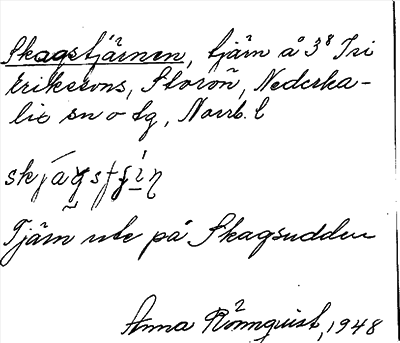 Skagstjärnen, tjärn å 3⁸ Tri
Erikssons, Storön, Nederka-
lix sn o tg, Norrb. l
Tjärn ute på Skagsudden
Anna Rönnquist, 1948